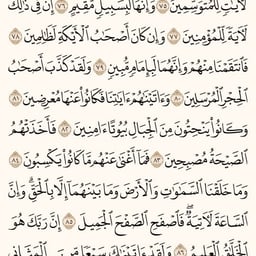 لَأٓيَٰتٖ لِّلۡمُتَوَسِّمِينَ ٧٥ وَإِنَّهَا لَبِسَبِيلٖ مُّقِيمٍ ٧٦ إِنَّ فِي ذَٰلِكَ
لَأٓيَةٗ لِّلۡمُؤۡمِنِينَ ٧٧ وَإِن كَانَ أَصۡحَٰبُ ٱلۡأَيۡكَةِ لَظَٰلِمِينَ ٧٨
فَٱنتَقَمۡنَا مِنۡهُمۡ وَإِنَّهُمَا لَبِإِمَامٖ مُّبِينٖ ٧٩ وَلَقَدۡ كَذَّبَ أَصۡحَٰبُ
ٱلۡحِجۡرِ ٱلۡمُرۡسَلِينَ ٨٠ وَءَاتَيۡنَٰهُمۡ ءَايَٰتِنَا فَكَانُواْ عَنۡهَا مُعۡرِضِينَ ٨١
وَكَانُواْ يَنۡحِتُونَ مِنَ ٱلۡجِبَالِ بُيُوتًا ءَامِنِينَ ٨٢ فَأَخَذَتۡهُمُ
ٱلصَّيۡحَةُ مُصۡبِحِينَ ٨٣ فَمَآ أَغۡنَىٰ عَنۡهُم مَّا كَانُواْ يَكۡسِبُونَ ٨٤
وَمَا خَلَقۡنَا ٱلسَّمَٰوَٰتِ وَٱلۡأَرۡضَ وَمَا بَيۡنَهُمَآ إِلَّا بِٱلۡحَقِّۗ وَإِنَّ
ٱلسَّاعَةَ لَأٓتِيَةٞۖ فَٱصۡفَحِ ٱلصَّفۡحَ ٱلۡجَمِيلَ ٨٥ إِنَّ رَبَّكَ هُوَ
ٱلۡخَلَّٰقُ ٱلۡعَلِيمُ ٨٦ وَلَقَدۡ ءَاتَيۡنَٰكَ سَبۡعٗا مِّنَ ٱلۡمَثَانِي